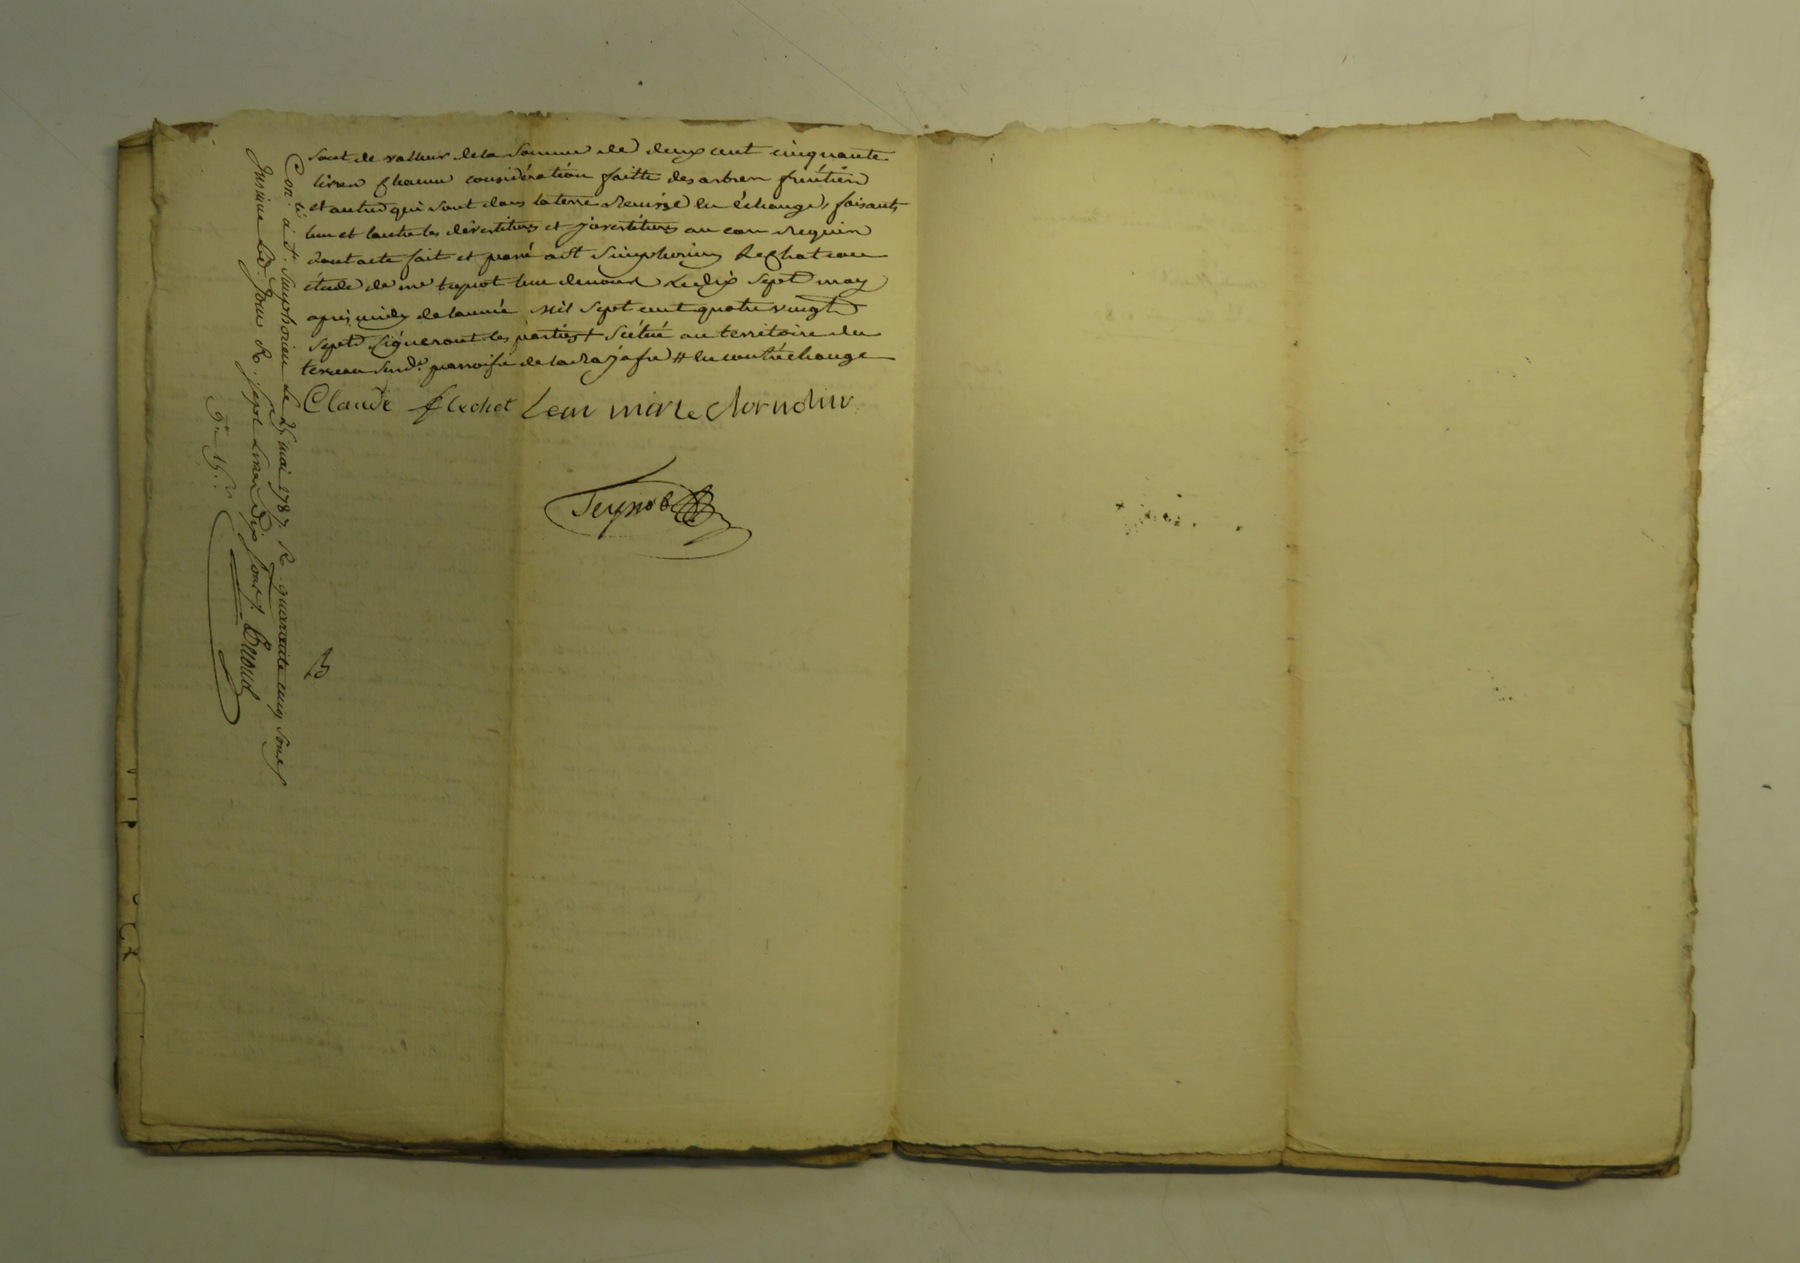 sont de valleur de la somme de deux cent cinquante
livres chacun considération faitte des arbres fruitiers
et autres qui sont dans la terre remise en échange, faisants
lun et lautre les dévertitures et jnvertitures au cas requis
dont acte fait et passé a st Simphorien le chateau
étude de me teynot lun de nous le dix sept may
après midy de lannée mil sept cent quatre vingt
sept signeront les parties + scitué au territoire du
terreau sud. parroisse de la # en contréchange
Claude flechet Jean marie
Teynot
Con. à st. Simphorien le 25 mai 1787. R. quarante cinq sous
Jnsinué led. Jour R. sept livres dix sous.